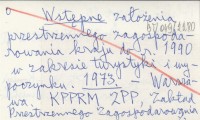 Wstępne założenia
przestrzennego zagospoda-
rowania kraju do r. 1990
w zakresie turystyki i wy-
poczynku. 1973 Warsza-
wa. KPPRM ZPP, Zakład
Przestrzennego Zagospodarowania